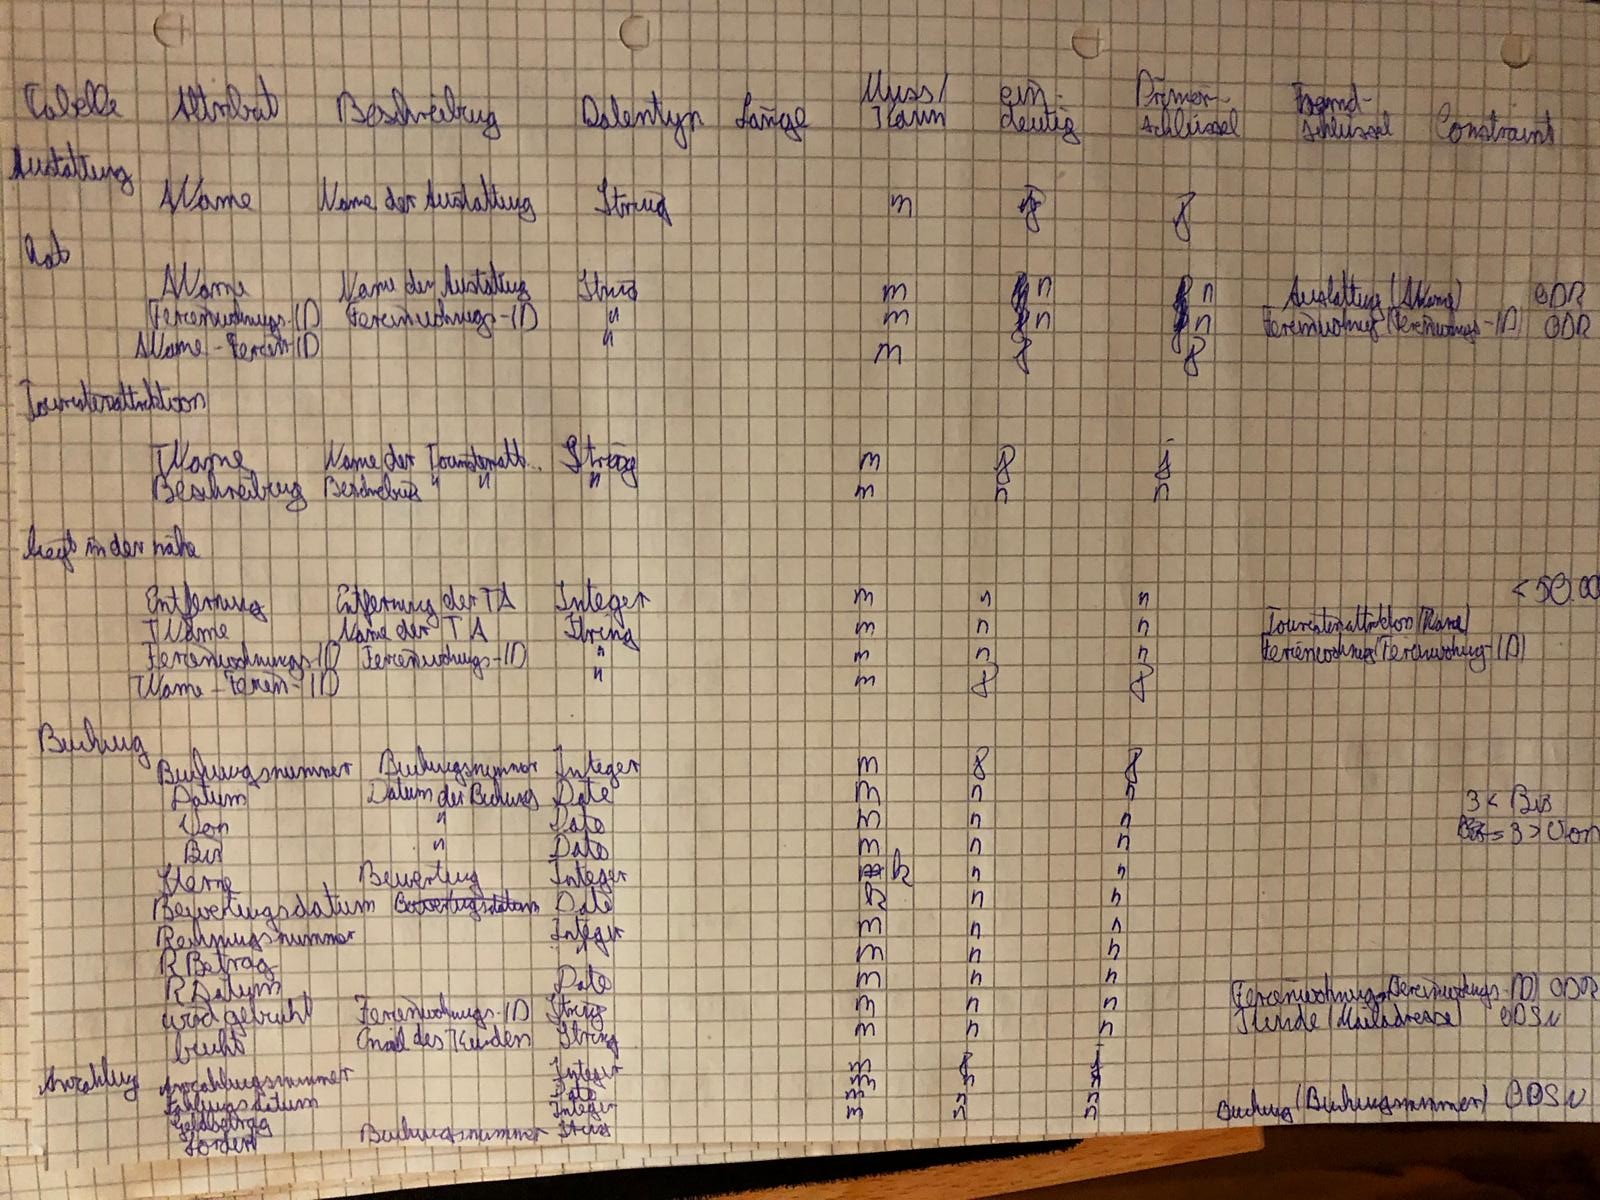 Tabelle Attribut Beschreibug Datentyp Länge Muss/Kann eindeutig Primärschlüssel Fremdschlüssel Constraint
Austattung
AName Name der Austattung String m j j
hat
AName Name der Austattug String m n n Austattung (AName) ODR
Ferienwohnungs-ID Ferienwohnugs-ID " m n n Ferienwohnug (Ferienwohnugs-ID) ODR
AName-Ferien-ID " m j j
Touristenattraktion
TName Name der Touristenatt.. String m j j
Beschreibug Beschreibug " " " m n n
liegt in der nähe
Entfernung Entfernung der TA Integer m n n < 50.00
TName Name der TA String m n n Touristenattraktion (Name)
Ferienwohnungs-ID Ferienwohnugs-ID " m n n Ferienwohnug (Ferienwohnug-ID)
TName-Ferien-ID " m j j
Buchung
Buchungsnummer Buchungsnummer Integer m j j
Datum Datum der Buchung Date m n n
Von " Date m n n 3 < Bis
Bis " Date m n n 3 > Von
Sterne Bewertung Integer k n n
Bewertungsdatum Bewertungsdatum Date k n n
Rechnugsnummer Integer m n n
RBetrag " m n n
RDatum Date m n n
wird gebucht Ferienwohnugs-ID String m n n Ferienwohnungs (Ferienwohnugs-ID) ODR
bucht Email des Kunden String m n n Kunde (Mailadresse) ODSN
Anzahlug Anzahlugsnummer Integer m j j
Zahlungsdatum Date m n n
Geldbetrag Integer m n n
Buchungsnummer String m n n Buchug (Buchungsnummer) ODSN